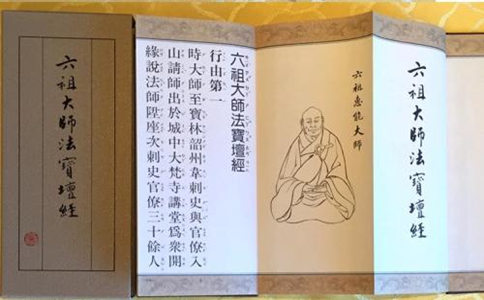 六祖大師法寶壇經
六祖惠能大師
六祖大師法寶壇經
行由第一
時大師至寶林韶州韋刺史與官僚入
山請師出於城中大梵寺講堂爲眾開
緣說法師陞座次刺史官僚三十餘人
六祖大師法寶壇經